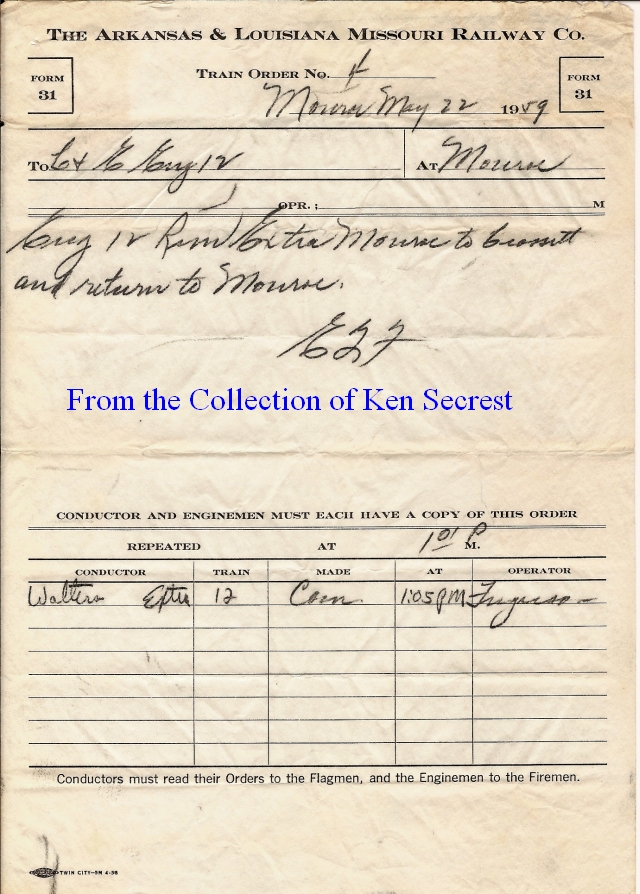 THE ARKANSAS & LOUISIANA MISSOURI RAILWAY CO.
FORM 31
TRAIN ORDER NO. 4
FORM 31
Monroe May 22 1959
To C & E Eng 12 At Monroe
OPR.; M
Eng 12 Run Extra Monroe to Crossett
and return to Monroe.
From the Collection of Ken Secrest
CONDUCTOR AND ENGINEMEN MUST EACH HAVE A COPY OF THIS ORDER
REPEATED AT 1 01 P M.
CONDUCTOR TRAIN MADE AT OPERATOR
Walters Extra 12 Com 1:05 PM Ferguson
Conductors must read their Orders to the Flagmen, and the Enginemen to the Firemen.
TWIN CITY—5M 4-56